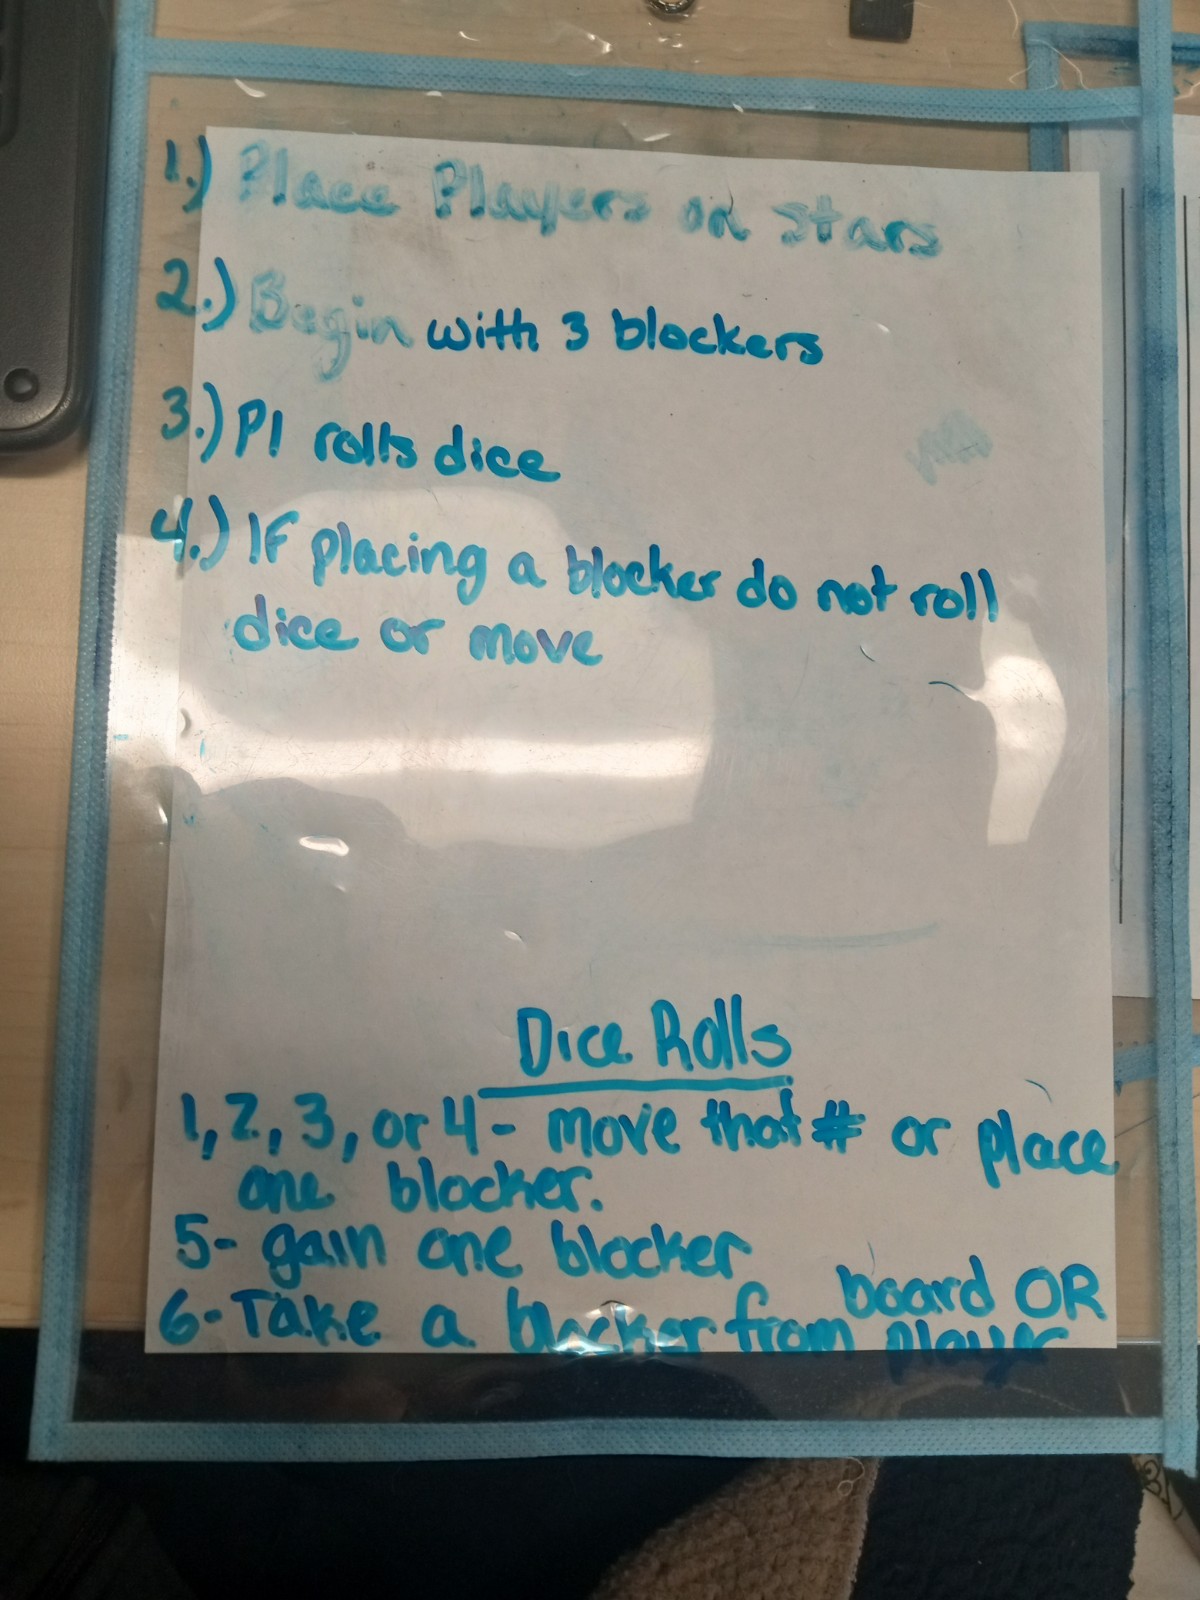 1.) Place Players on stars
2.) Begin with 3 blockers
3.) P1 rolls dice
4.) IF placing a blocker do not roll
dice or move
Dice Rolls
1, 2, 3, or 4 - move that # or place
one blocker.
5- gain one blocker
6- Take a blocker from board OR
player